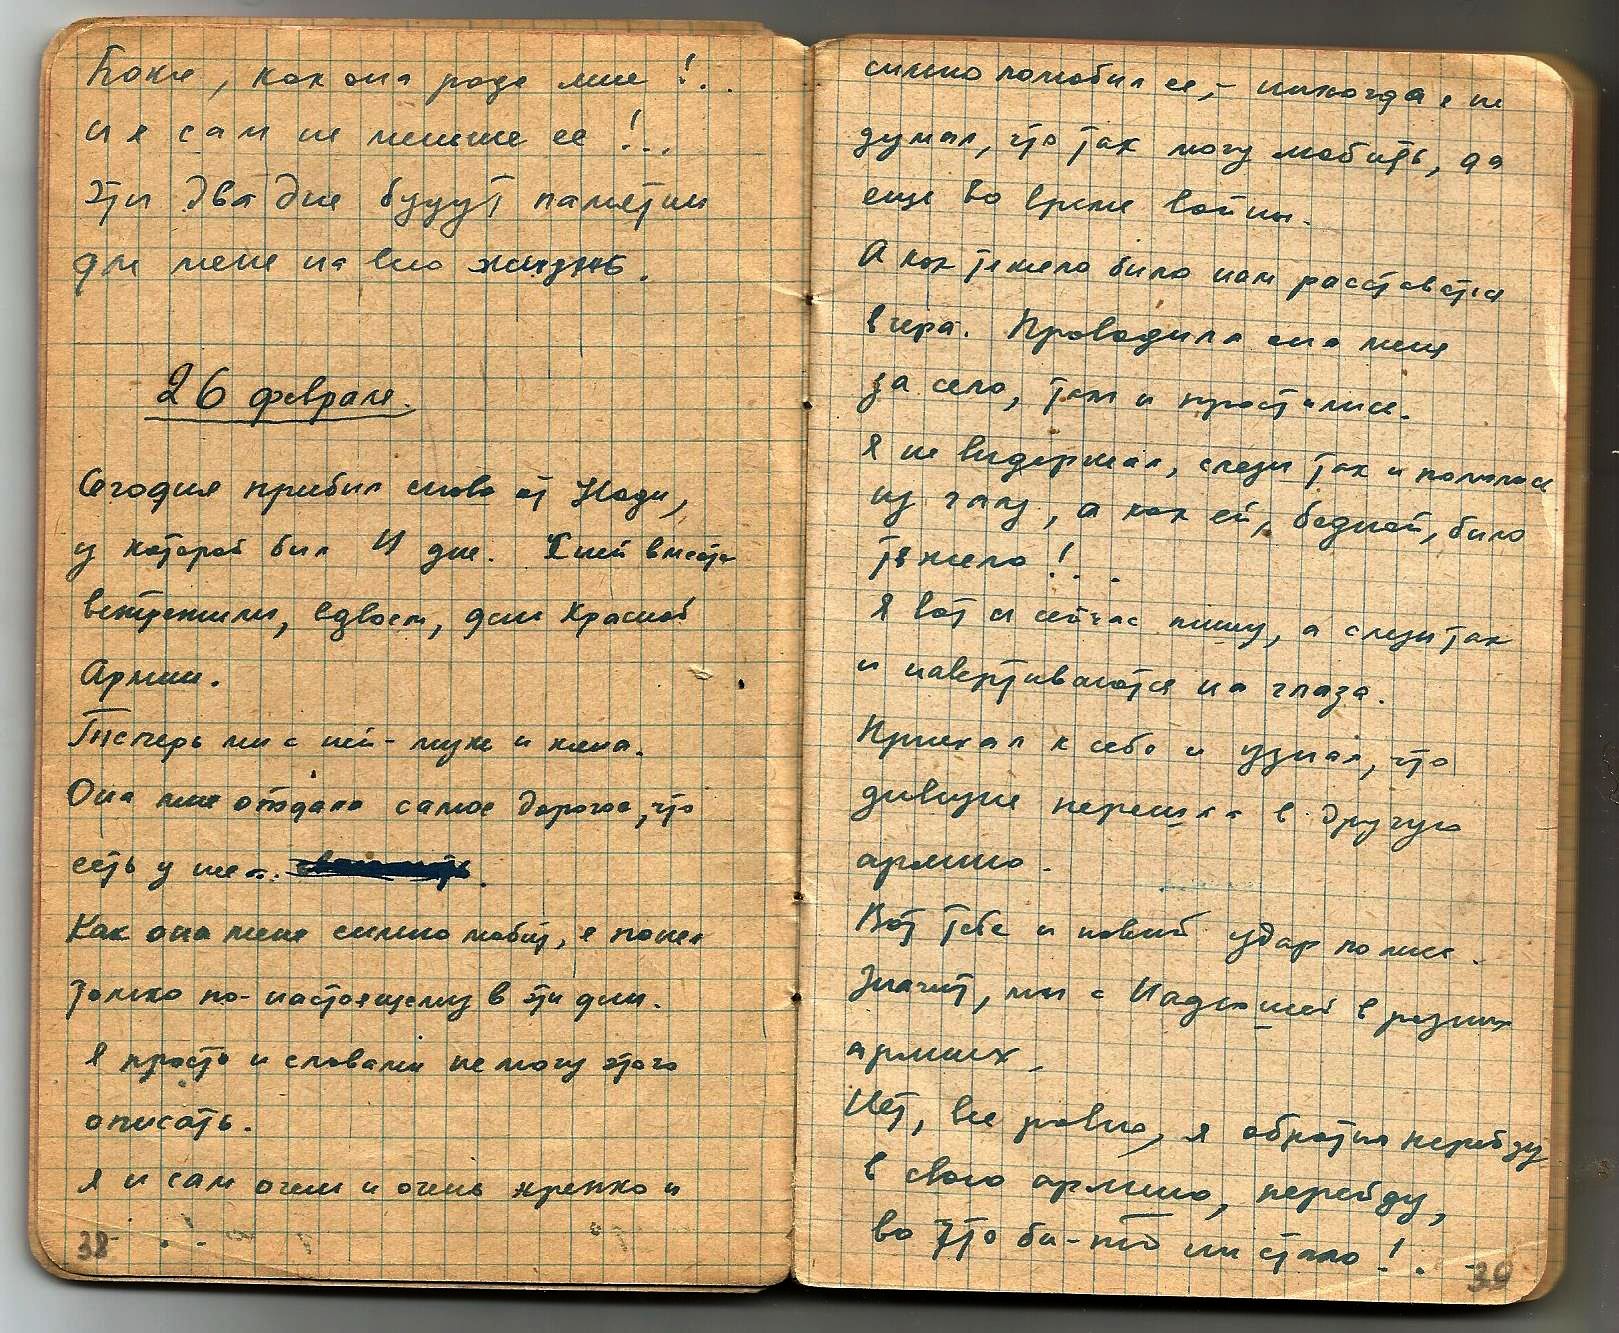 Боже, как она рада мне!..
и я сам не меньше ее!..
Эти два дня будут памятни
для меня на всю жизнь.
26 февраля.
Сегодня прибил снова от Нади,
у которой бил 4 дня. С ней вместе
встретили, вдвоем, дни Красной
Армии.
Теперь ми с ней - муж и жена.
Она мне отдала самое дорогое, что
есть у нея.
Как она меня сильно любит, я понял
только по-настоящему в эти дни.
Я просто и словами не могу этого
описать.
Я и сам очень и очень крепко и
38
сильно полюбил ее, - никогда я не
думал, что так могу любить, да
еще во время войны.
А как тяжело било нам расставатся
вчера. Проводила она меня
за село, там и простились.
Я не видержал, слези так и полились
из глаз, а как ей, бедной, било
тяжело!..
Я вот и сейчас пишу, а слези так
и навертиваются на глаза.
Приехал к себе и узнал, что
дивизия перешла в другую
армию.
Вот тебе и новий удар по мне.
Значит, ми с Надюшей в разних
армиях.
Нет, все равно, я обратно перейду
в свою армию, перейду,
во что би-то ни стало!.
39